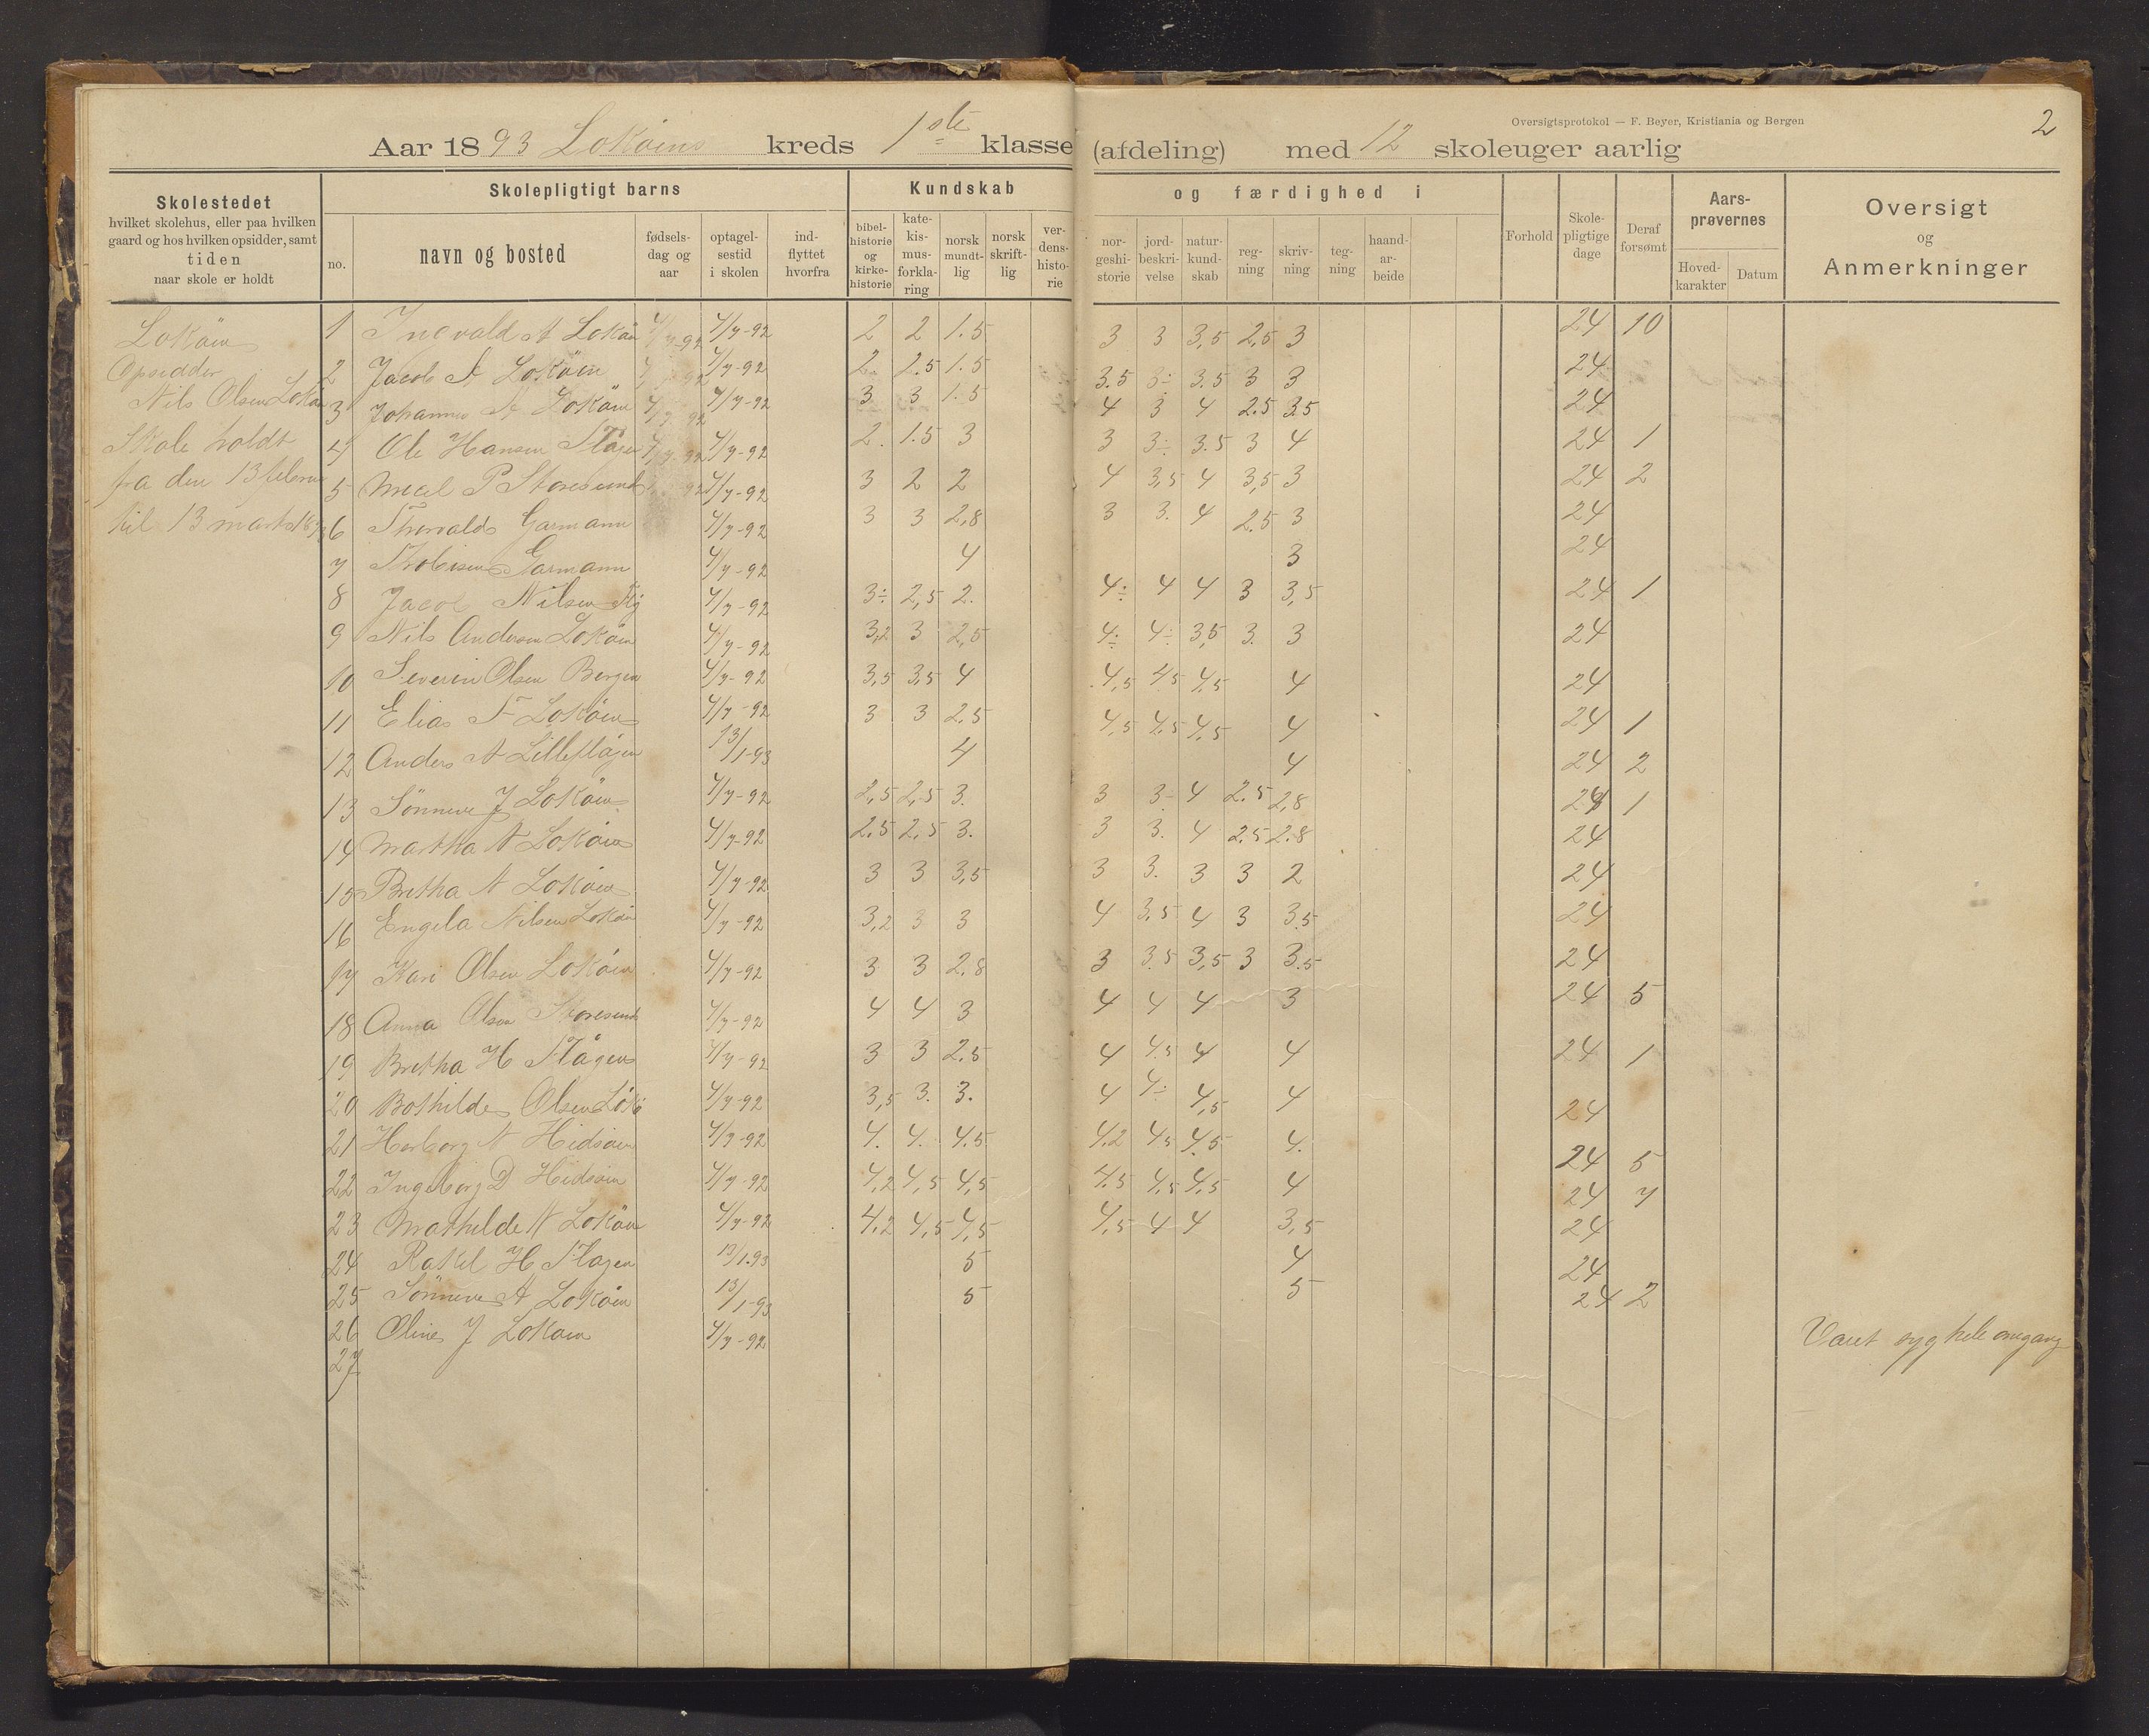 Oversigtsprotokol — F. Beyer, Kristiania og Bergen
2
Aar 1893 Lokøins kreds 1ste klasse (afdeling) med 12 skoleuger aarlig
Skolestedet
hvilket skolehus, eller paa hvilken
gaard og hos hvilken opsidder, samt
tiden
naar skole er holdt
Skolepligtigt barns
no.
navn og bosted
fødsels-
dag og
aar
optagel-
sestid
i skolen
ind-
flyttet
hvorfra
Kundskab og færdighed i
bibel-
historie
og
kirke-
historie
kate-
kis-
mus-
forkla-
ring
norsk
mundt-
lig
norsk
skrift-
lig
ver-
dens-
histo-
rie
nor-
geshi-
storie
jord-
beskri-
velse
natur-
kund-
skab
reg-
ning
skriv-
ning
teg-
ning
haand-
ar-
beide
Forhold
Skole-
pligtige
dage
Deraf
forsømt
Aars-
prøvernes
Hoved-
karakter
Datum
Oversigt
og
Anmerkninger
Lokøin
Opsidder
Nils Olsen Lokøin
Skole holdt
fra den 13 februar
til 13 marts 1893
1 Ingvald A Lokøin 4/7-92 4/7-92 2 2 1.5 3 3 3,5 2,5 3 24 10
2 Jacob A Lokøin 4/7-92 2. 2.5 1.5 3.5 3÷ 3.5 3 3 24
3 Johannes A Lokøin 4/7-92 3 3 1.5 4 3 4 2.5 3.5 24
4 Ole Hansen Flågen 4/7-92 2. 1.5 3 3 3÷ 3.5 3 4 24 1
5 P Storesund 4/7-92 3 2 2 4 3,5 4 3,5 3 24 2
6 Thorvald Garmann 4/7-92 3 3 2,8 3 3. 4 2.5 3 24
7 Garmann 4/7-92 4 3 24
8 Jacob Nilsen 4/7-92 3÷ 2,5 2. 4÷ 4 4 3 3,5 24 1
9 Nils Andersen Lokøin 4/7-92 3,2 3 2,5 4÷ 4÷ 3,5 3. 3 24
10 Severin Olsen Bergen 4/7-92 3,5 3,5 4 4,5 4,5 4,5 4 24
11 Elias F Lokøin 4/7-92 3 3 2.5 4,5 4,5 4,5 4 24 1
12 Anders A Lilleflågen 13/1-93 4 4 24 2
13 Sønneve J Lokøin 4/7-92 2,5 2,5 3. 3 3÷ 4 2.5 2,8 24 1
14 Martha N Lokøin 4/7-92 2.5 2,5 3. 3 3. 4 2.5 2.8 24
15 Bretha N Lokøin 4/7-92 3 3 3,5 3 3. 3 3 2 24
16 Engela Nilsen Lokøin 4/7-92 3,2 3 3 4 3,5 4 3 3.5 24
17 Kari Olsen Lokøin 4/7-92 3 3 2.8 3 3.5 3,5 3 3.5 24
18 Anna Olsen Storesund 4/7-92 4 4 3 4 4 4 3 24 5
19 Bretha H Flågen 4/7-92 3 3 2.5 4 4.5 4 4 24 1
20 Bothilde Olsen Lokø 4/7-92 3,5 3. 3. 4 4÷ 4,5 4 24
21 Herborg N Hidsøin 4/7-92 4. 4. 4.5 4.2 4,5 4,5 4. 24 5
22 Ingeborg D Hidsøin 4/7-92 4,2 4,5 4,5 4.5 4,5 4,5 4 24 7
23 Mathilde N Lokøin 4/7-92 4,2 4,5 4,5 4,5 4 4 3,5 24
24 Rakel H Flagen 13/1.93 5 4 24
25 Sønneve A Lokøin 13/1-93 5 5 24 2
26 Oline J Lokøin 4/7-92 Været syg hele omgang
27